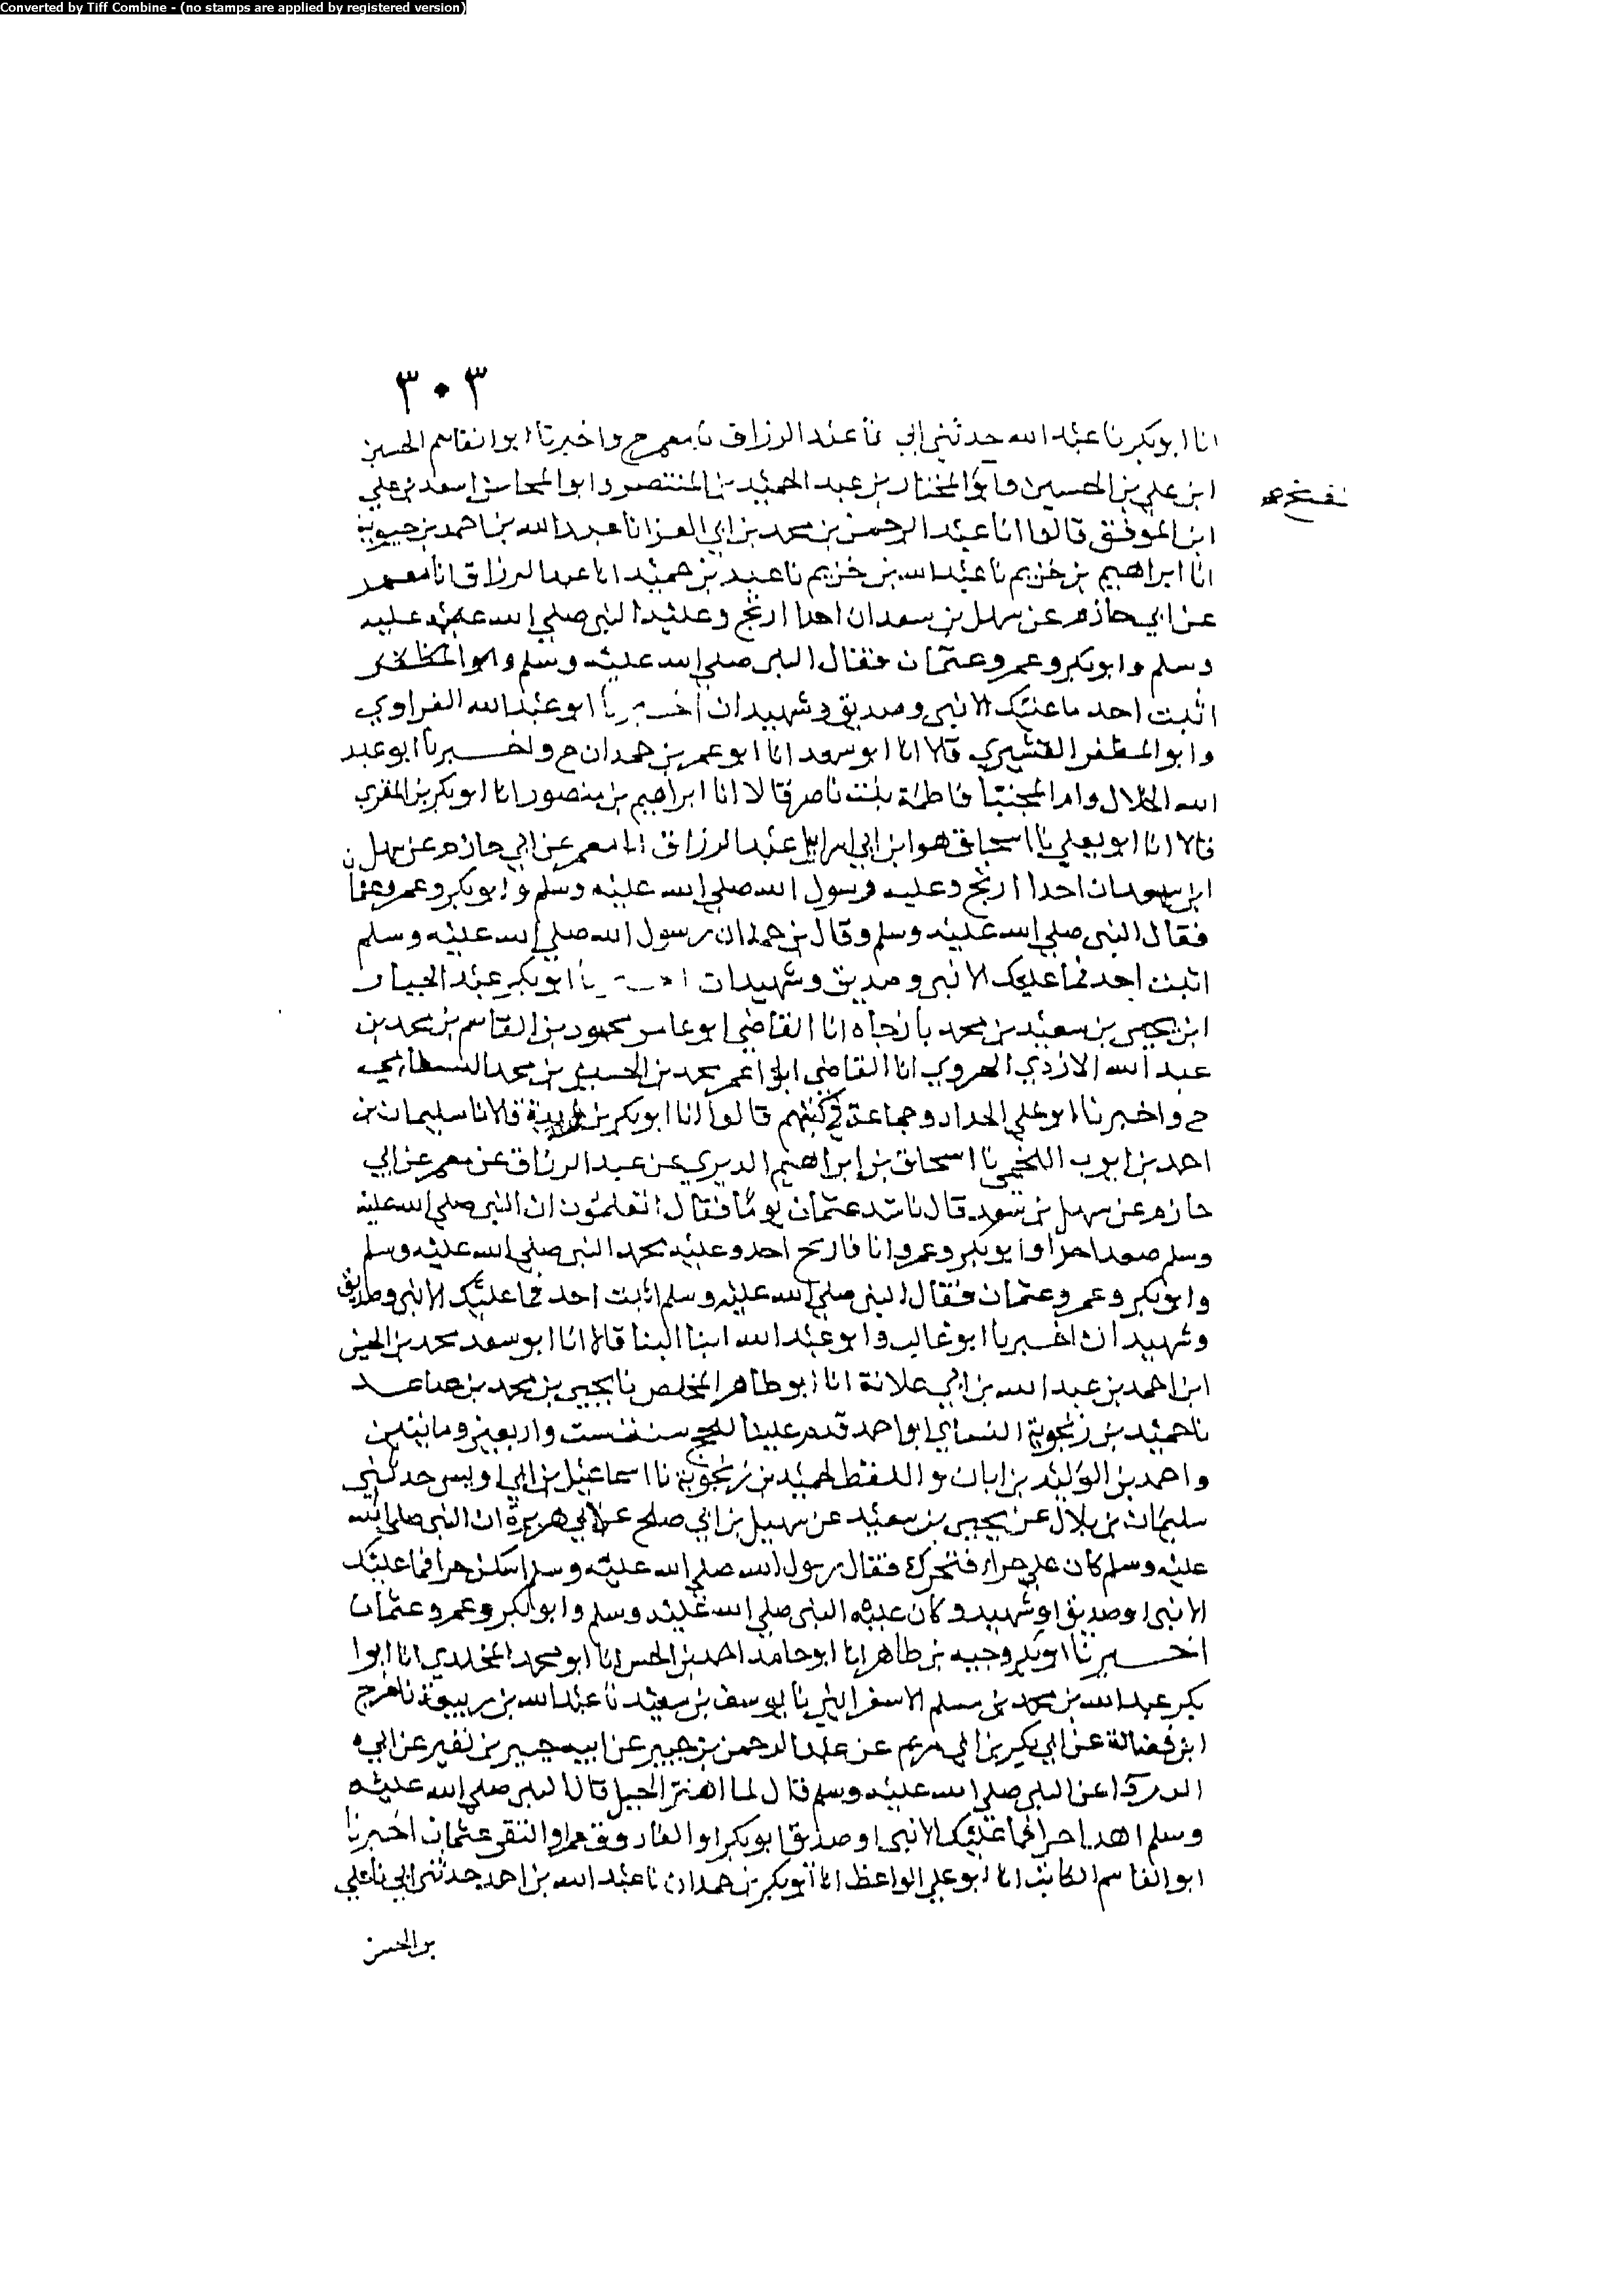 Converted by Tiff Combine - (no stamps are applied by registered version)
٣٠٣
انا ابو بكر نا عبد الله حدثني ابي نا عبد الرزاق نا معمر ح واخبرنا ابوا لقاسم الحسين
ابن علي بن الحسين وابو المختار بن عبد الحميد بن المنتصر وابو المحاسن اسعد بن علي
ابن الموفق قالوا انا عبد الرحمن بن محمد بن ابي العز انا عبد الله بن احمد بن حيوية
انا ابراهيم بن خزيم نا عبد الله بن خزيم نا عبد بن حميد انا عبد الرزاق انا معمر
عن ابي حازم عن سهل بن سعد ان احدا ارتج وعليه النبي صلي الله عليه
وسلم وابو بكر وعمر وعثمان فقال النبي صلي الله عليه وسلم وابو المظفر
اثبت احد ما عليك الا نبي وصديق وشهيدان اخبرنا ابو عبد الله الفراوي
وابو المظفر القشيري قالا انا ابو سعد انا ابو عمر بن حمدان ح واخبرنا ابو عبد
الله الخلال وام المجتبا فاطمة بنت ناصر قالا انا ابراهيم بن منصور انا ابو بكر بن المقري
قالا انا ابو يعلي نا اسحاق هو ابن ابي اسرايل عبد الرزاق انا معمر عن ابي حازم عن سهل
ابن سعد ان احدا ارتج وعليه رسول الله صلي الله عليه وسلم وابو بكر وعمر وعثما
فقال النبي صلي الله عليه وسلم وقال بن حمدان رسول الله صلي الله عليه وسلم
اثبت احد فما عليك الا نبي وصديق وشهيدان اخبرنا ابو بكر عبد الجبار
ابن يحيي بن سعيد بن محمد بازجاه انا القاضي ابو عامر محمود بن القاسم بن محمد بن
عبد الله الازدي الهروي انا القاضي ابو اعمر محمد بن الحسين بن محمد البسطامي
ح واخبرنا ابو علي الحداد وجماعة في كتبهم قالوا انا ابو بكر بن ريدة قالا نا سليمان بن
احمد بن ايوب اللخمي نا اسحاق بن ابراهيم الدبري عن عبد الرزاق عن معمر عن ابي
حازم عن سهل بن سعد قال ناشد عثمان يوما فقال اتعلمون ان النبي صلي الله عليه
وسلم صعد احدا وابو بكر وعمر وانا فارتج احد وعليه محمد النبي صلي الله عليه وسلم
وابو بكر وعمر وعثمان فقال النبي صلي الله عليه وسلم اثبت احد فما عليك الا نبي وصديق
وشهيدان اخبرنا ابو غالب وابو عبد الله ابنا البنا قالا انا ابو سعد محمد بن الحسين
ابن احمد بن عبد الله بن ابي علانة انا ابو طاهر المخلص نا يحيي بن محمد بن صاعد
نا حميد بن زنجوية النساي ابو احمد قدم علينا للحج سنة ست واربعين ومايتين
واحمد بن الوليد بن ابان واللفظ لحميد بن زنجوية نا اسماعيل بن ابي اويس حدثني
سليمان بن بلال عن يحيي بن سعيد عن سهيل بن ابي صالح عن ابي هريرة ان النبي صلي الله
عليه وسلم كان علي حراء فتحرك فقال رسول الله صلي الله عليه وسلم اسكن حرا فما عليك
الا نبي او صديق او شهيد وكان عليه النبي صلي الله عليه وسلم وابو بكر وعمر وعثمان
اخبرنا ابو بكر وجيه بن طاهر انا ابو حامد احمد بن الحسن انا ابو محمد المخلدي انا ابوا
بكر عبد الله بن محمد بن مسلم الاسفرايني نا يوسف بن سعيد نا عبد الله بن ربيعة نا فرج
ابن فضالة عن ابي بكر بن ابي مريم عن عبد الرحمن بن جبير عن ابيه جبير بن نفير عن ابي
الدردا عن النبي صلي الله عليه وسلم قال لما اهتز الجبل قال النبي صلي الله عليه
وسلم اهدا حرا فما عليك الا نبي او صديق ابو بكر او الفاروق عمر او التقي عثمان اخبرنا
ابو القاسم الكاتب انا ابو علي الواعظ انا ابو بكر بن حمدان نا عبد الله بن احمد حدثني ابي نا علي
بن الحسن